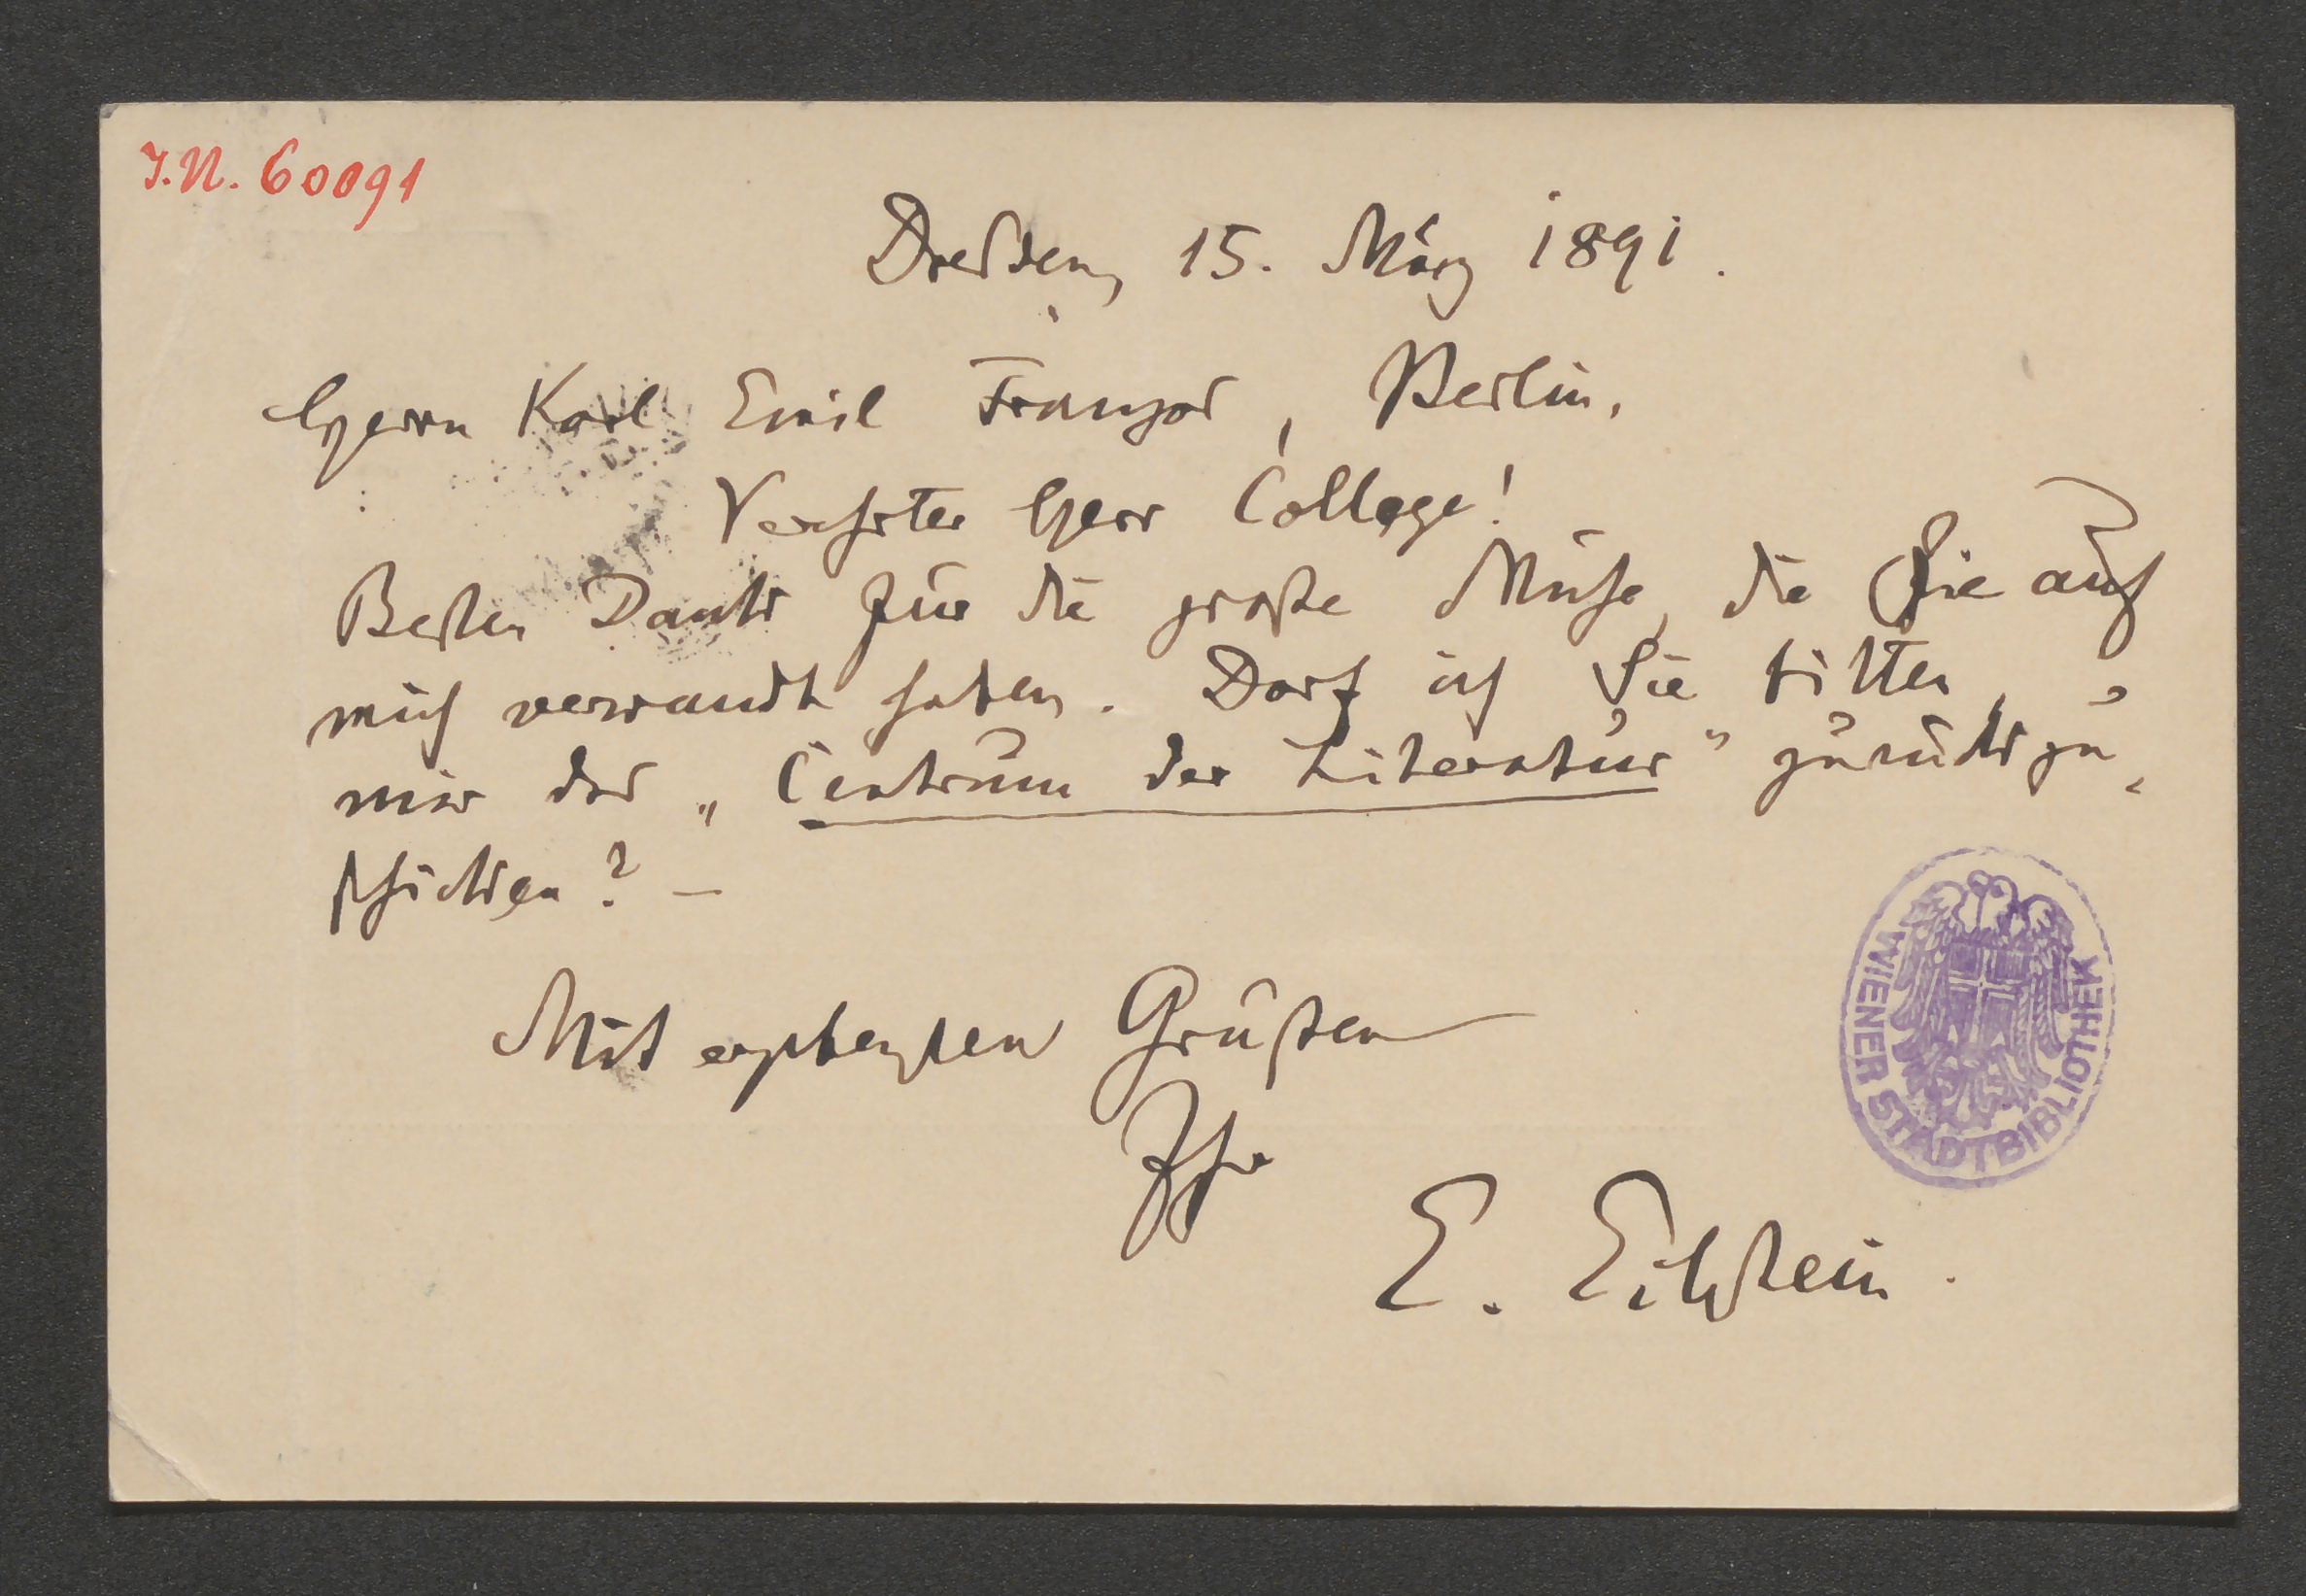 J.N. 60091
Dresden, 15. März 1891.
Herrn Karl Emil Franzos, Berlin.
Verehrter Herr College!
Besten Dank für die große Mühe, die Sie auf
mich verwandt haben. Darf ich Sie bitten,
mir das „Centrum der Literatur" zurückzu-
schicken? –
Mit ergebensten Grüßen
Ihr
E. Eckstein.
WIENER STADTBIBLIOTHEK